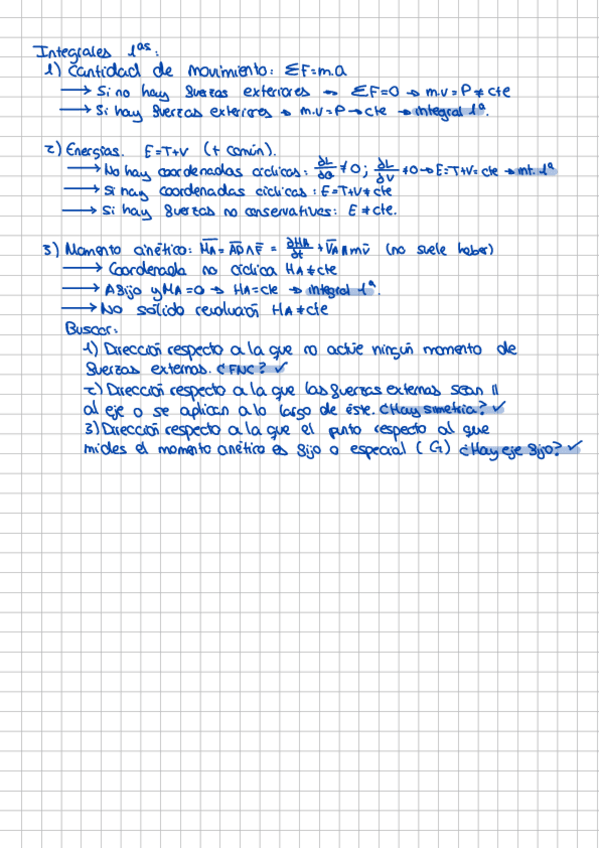 Integrales 1as:
1) Cantidad de movimiento: ΣF=m.a
→ Si no hay fuerzas exteriores → ΣF=0 → m.v=P≠cte
→ Si hay fuerzas exteriores → m.v=P→cte → integral 1ª.
2) Energías. E=T+V (+ común).
→ No hay coordenadas cíclicas: ∂L/∂θ ≠0; ∂L/∂V ≠0→E=T+V=cte → int. 1ª
→ Si hay coordenadas cíclicas: E=T+V≠cte
→ Si hay fuerzas no conservativas: E≠cte.
3) Momento cinético: H̅A=A̅D̅∧F̅ = ∂HA/∂t + V̅A∧mv̅ (no suele haber)
→ Coordenada no cíclica HA≠cte
→ A fijo y MA=0 → HA=cte → integral 1ª.
→ No sólido revolución HA≠cte
Buscar:
1) Dirección respecto a la que no actúe ningún momento de
fuerzas externas. ¿FNC? ✓
2) Dirección respecto a la que las fuerzas externas sean ||
al eje o se aplican a lo largo de éste. ¿Hay simetría? ✓
3) Dirección respecto a la que el punto respecto al que
mides el momento cinético es fijo o especial (G) ¿Hay eje fijo? ✓